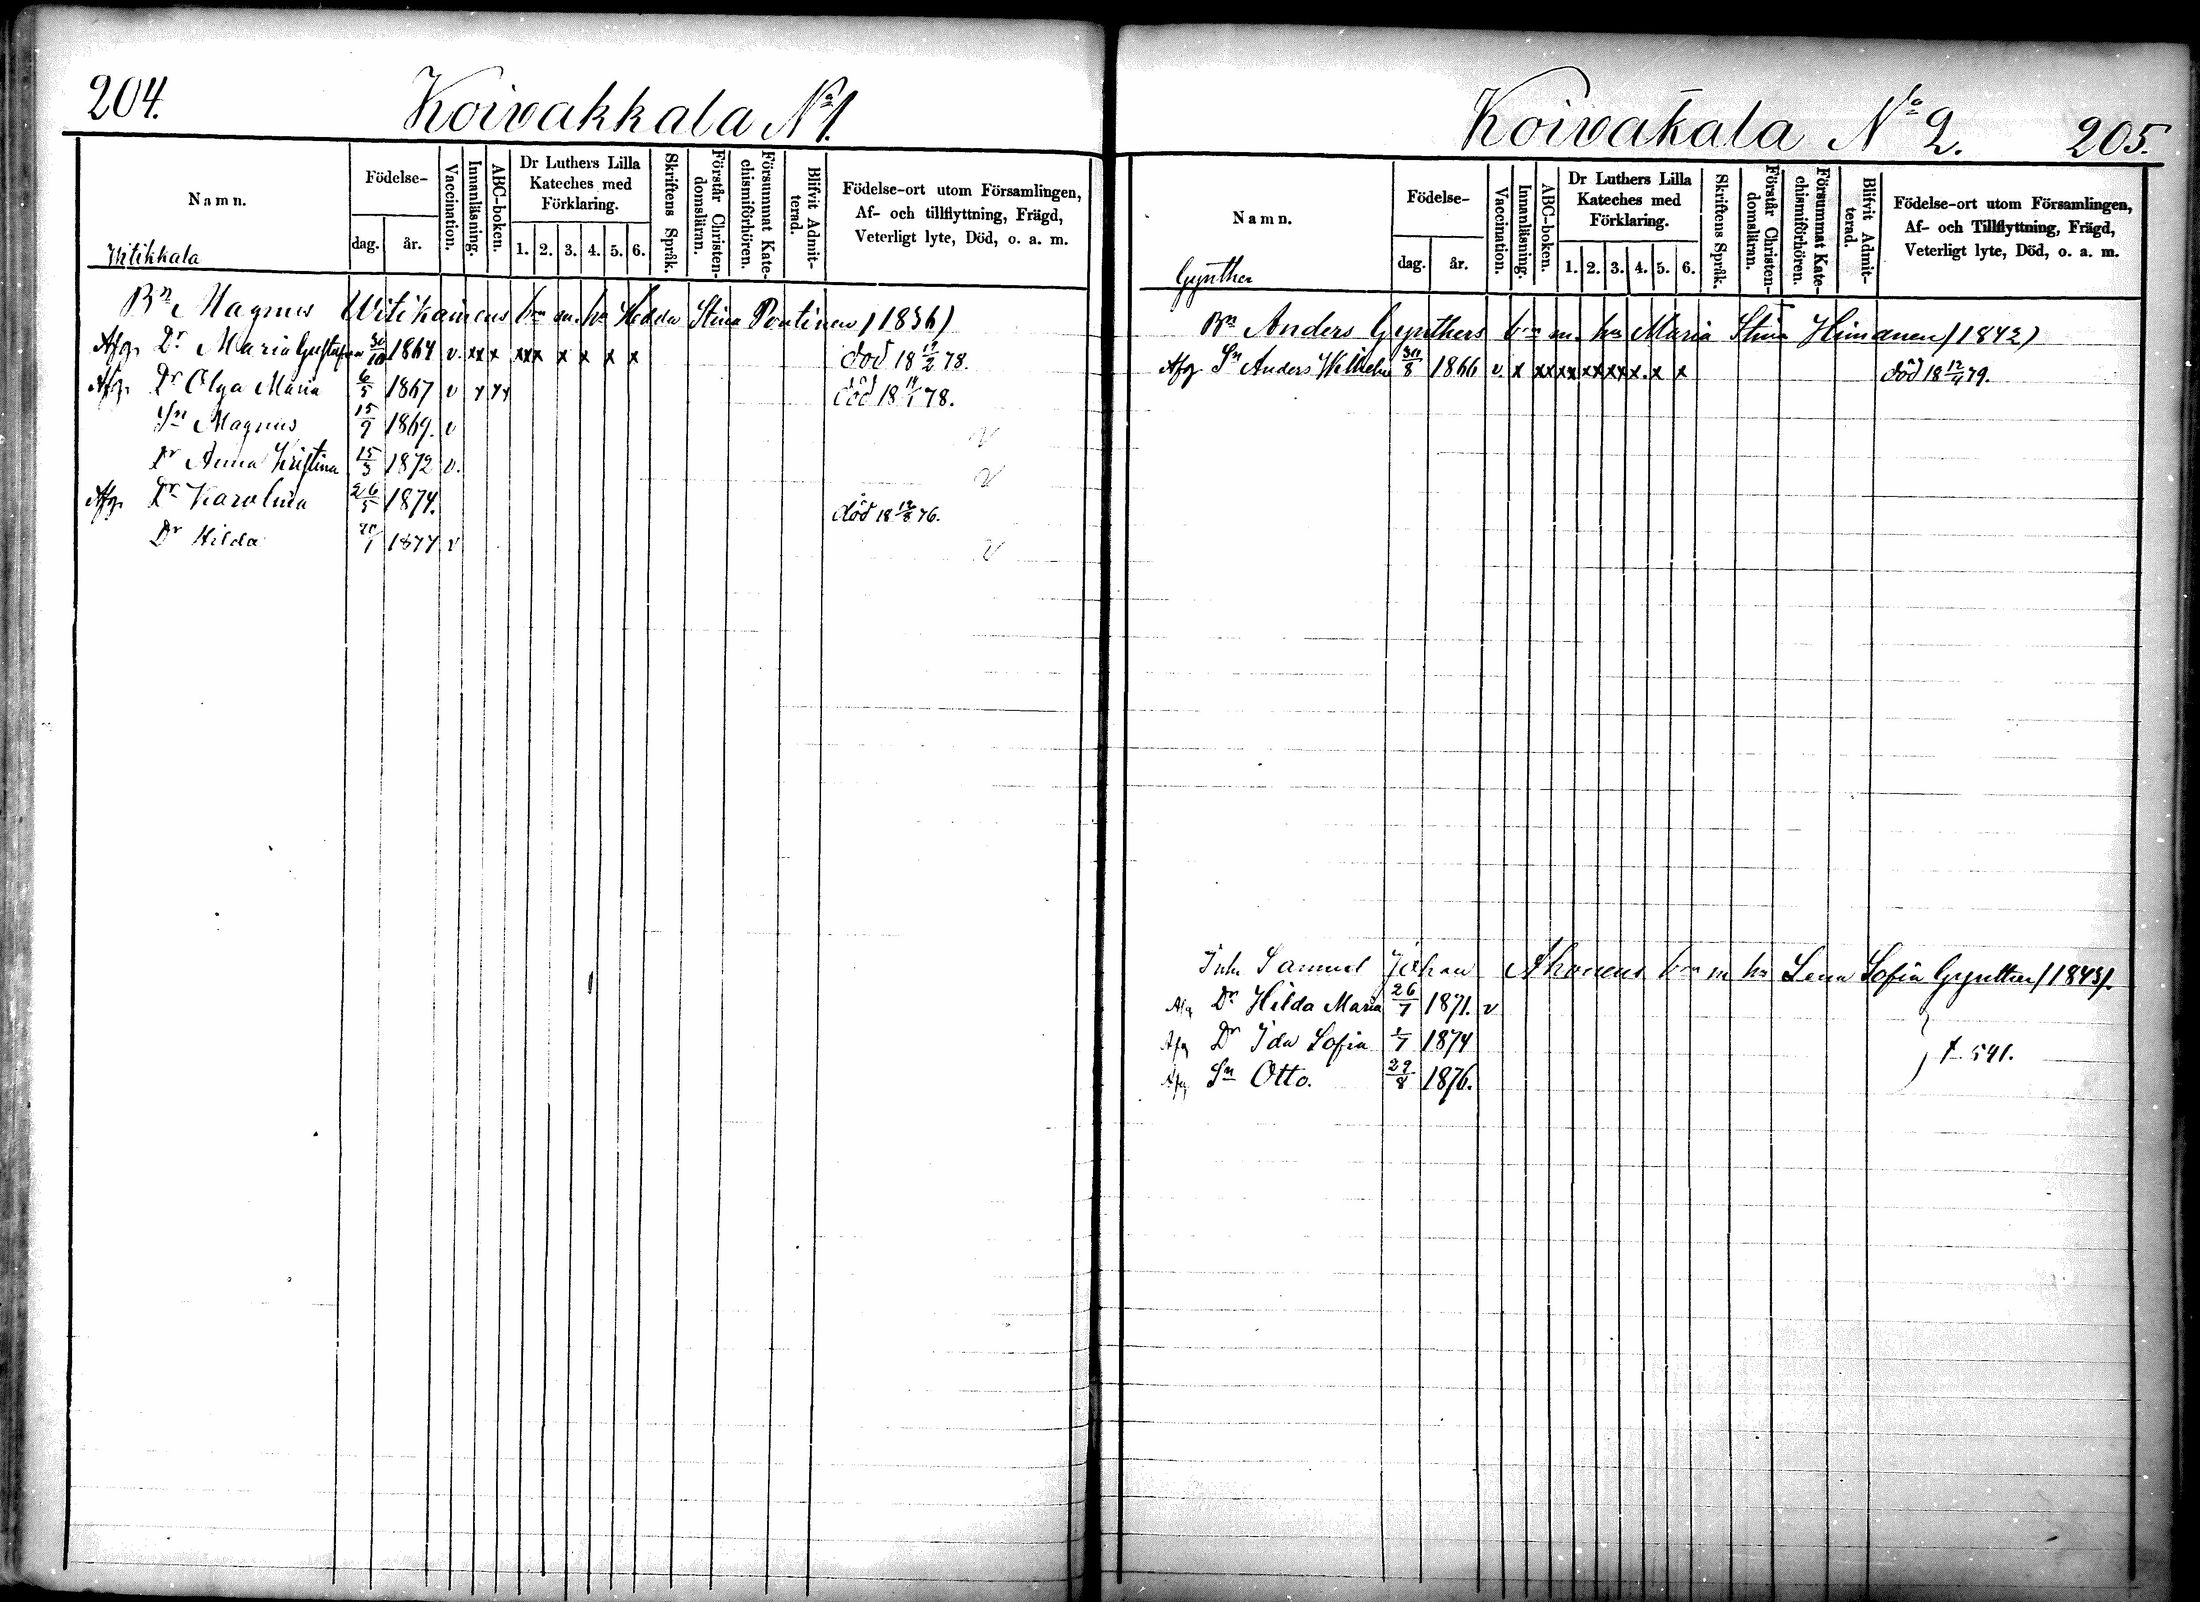 204.
Koivakkala No 1.
Namn.
Födelse-
dag.
år.
Vaccination.
Innanläsning.
ABC-boken.
Dr Luthers Lilla
Kateches med
Förklaring.
1. 2. 3. 4. 5. 6.
Skriftens Språk.
Förstår Christen-
domsläran.
Försummat Kate-
chismiförhören.
Blifvit Admit-
terad.
Födelse-ort utom Församlingen,
Af- och tillflyttning, Frägd,
Veterligt lyte, Död, o. a. m.
Witikkala
Bn Magnus Witikainens bn m. h. Hedda Stina Pontinen (1836)
Afg. Dr Maria Gustafva 30/10 1864 v. xx x xxx x x x x död 18 17/2 78.
Afg. Dr Olga Maria 6/5 1867 v x xx död 18 11/1 78.
Sn Magnus 15/9 1869. v v
Dr Anna Kristina 15/3 1872 v. v
Afg. Dr Karolina 26/5 1874. död 18 12/8 76.
Dr Hilda 1877 v v
Koivakala No 2.
205.
Namn.
Födelse-
dag.
år.
Vaccination.
Innanläsning.
ABC-boken.
Dr Luthers Lilla
Kateches med
Förklaring.
1. 2. 3. 4. 5. 6.
Skriftens Språk.
Förstår Christen-
domsläran.
Försummat Kate-
chismiförhören.
Blifvit Admit-
terad.
Födelse-ort utom Församlingen,
Af- och Tillflyttning, Frägd,
Veterligt lyte, Död, o. a. m.
Gynther
Bn Anders Gynthers bn m. h. Maria Stina Himanen (1842)
Afg. Sn Anders Wilhelm 30/8 1866 v. x xx xx xx xx x. x x död 18 12/4 79.
Inh. Samuel Johan Ahonens bn m h. Lena Sofia Gynther (1843).
Afg Dr Hilda Maria 26/7 1871. v
Afg Dr Ida Sofia 1/7 1874
} f. 541.
Afg Sn Otto. 29/8 1876.